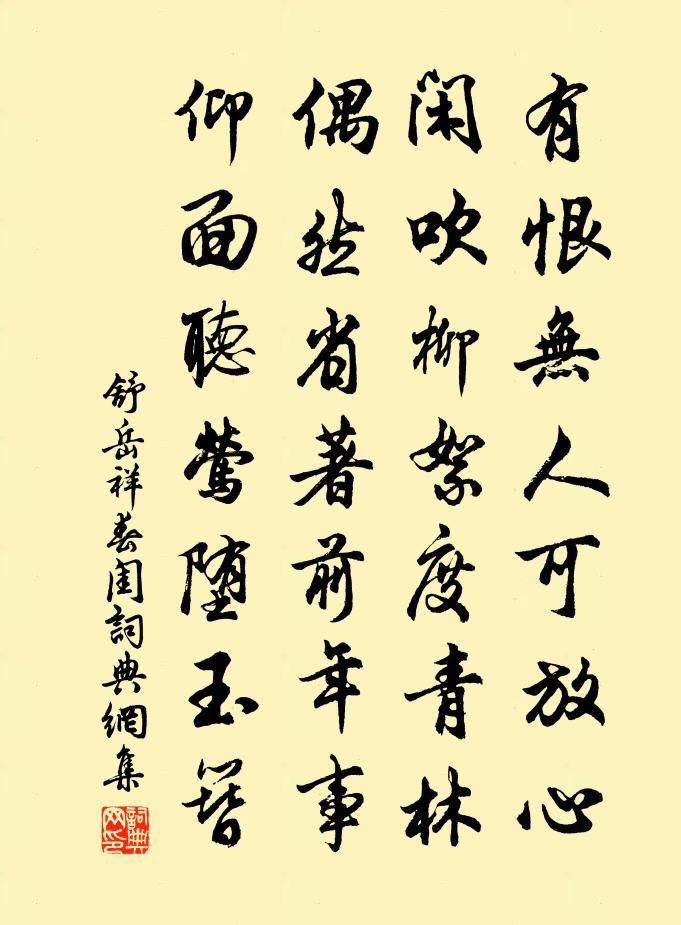 有恨無人可放心
閑吹柳絮度青林
偶然省著前年事
仰面聽鶯堕玉簪
舒岳祥春閨詞典網集
詞典網印